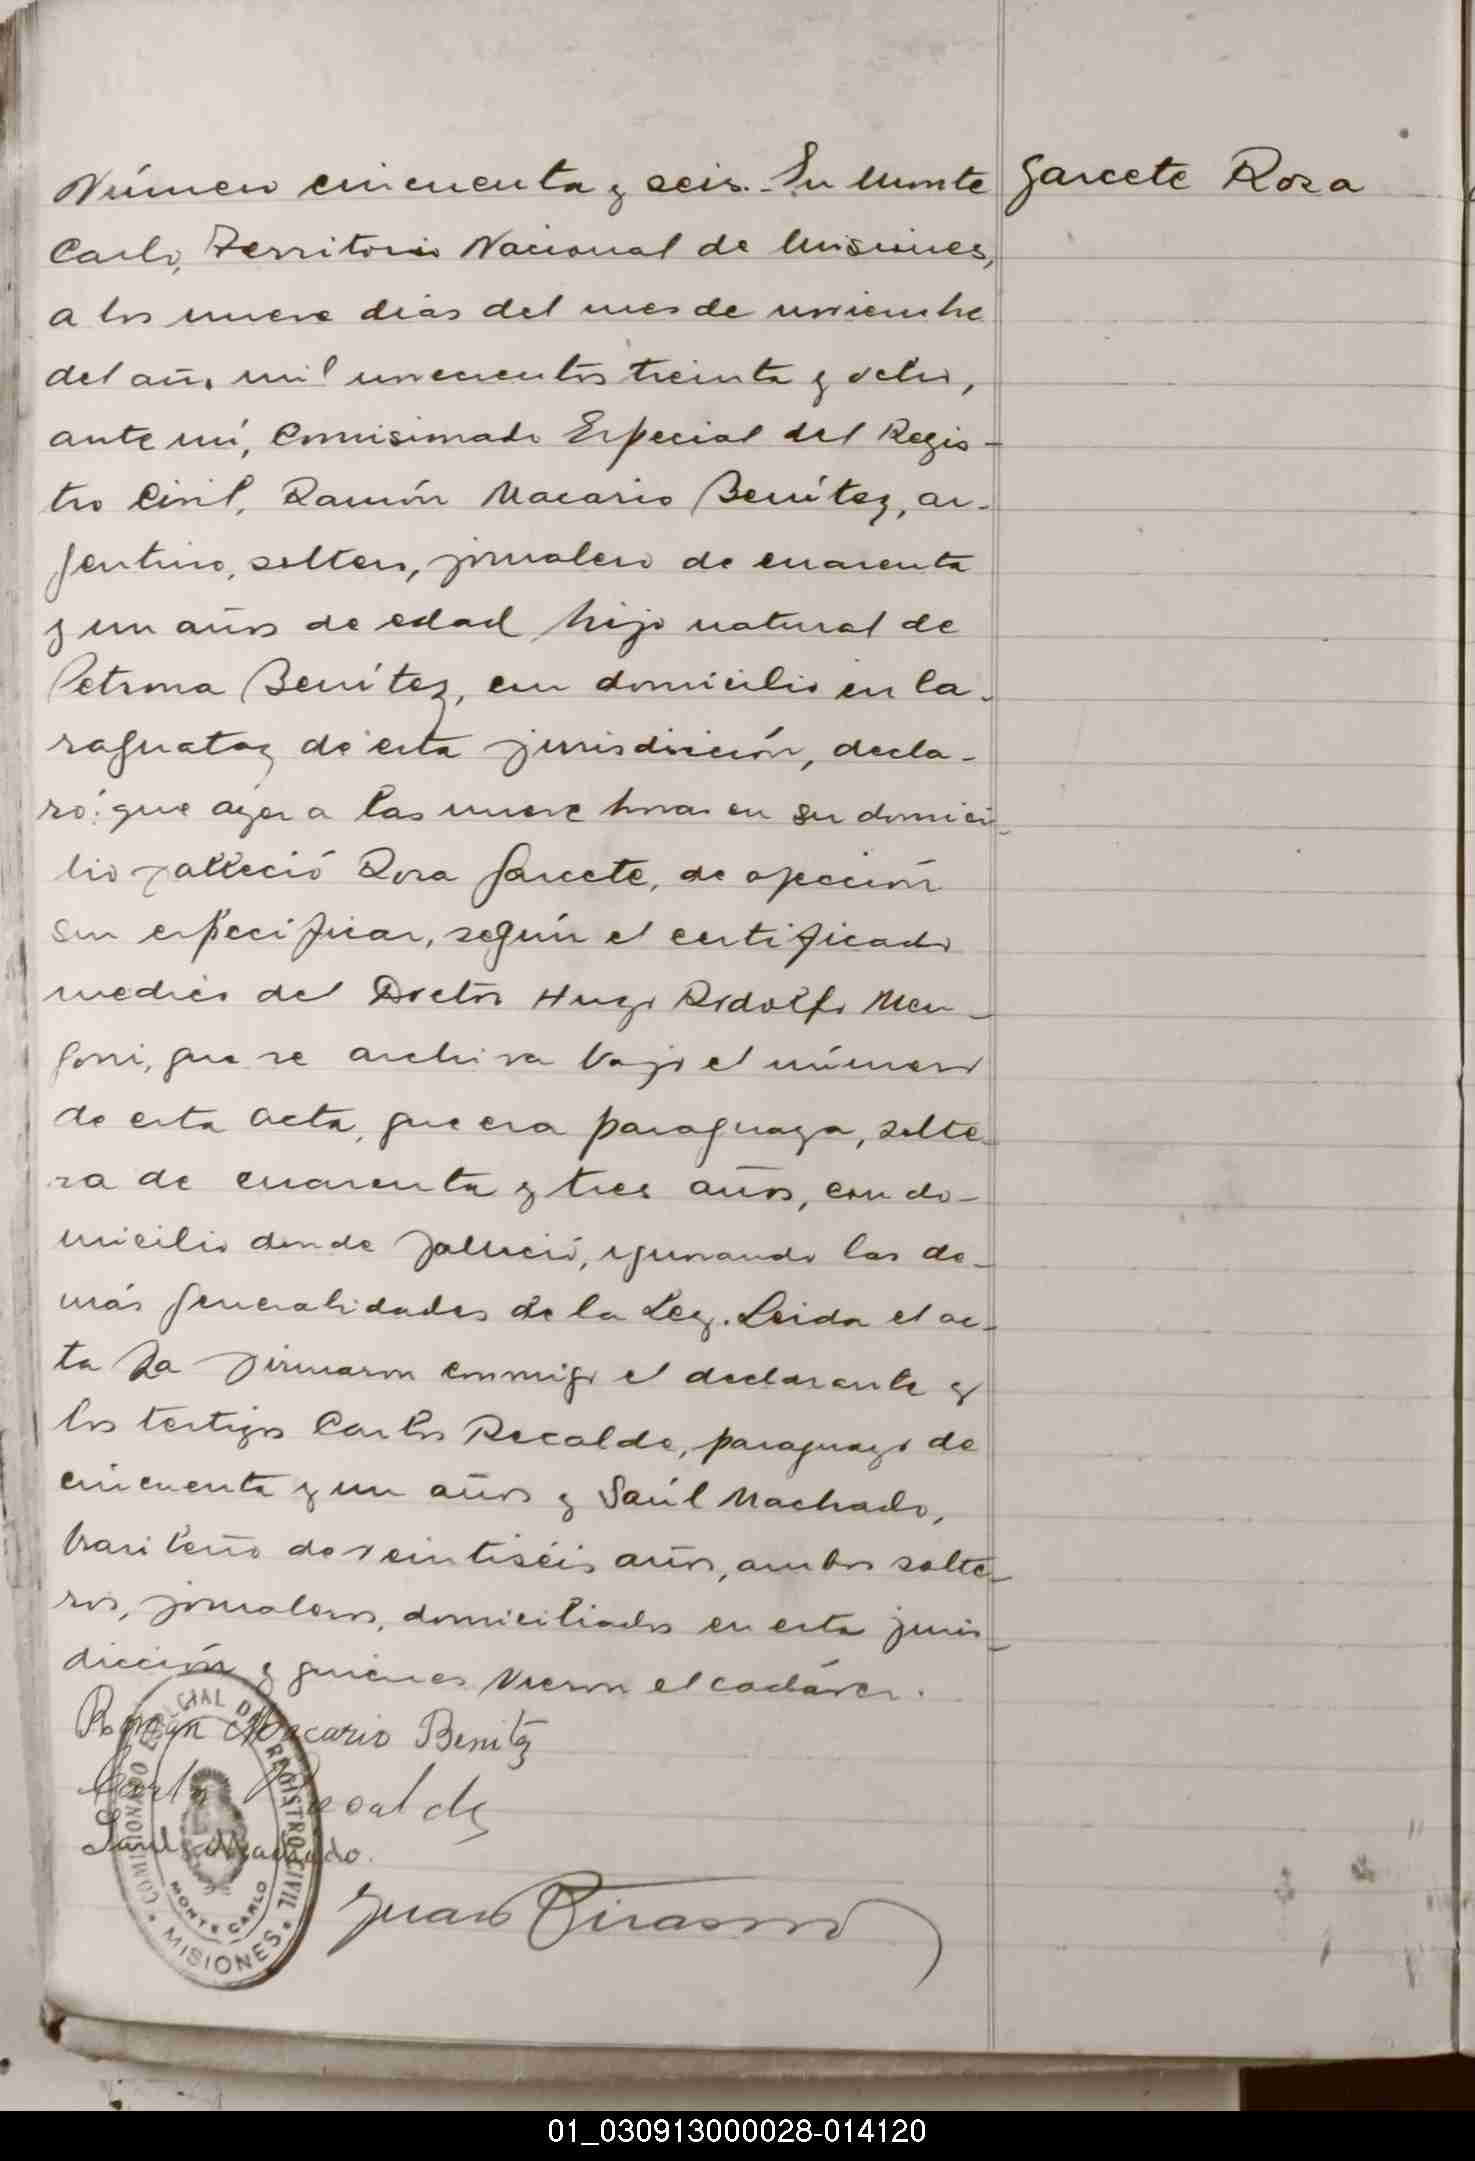 Número cincuenta y seis. En Monte
Garcete Rosa
Carlo, Territorio Nacional de Misiones,
a los nueve dias del mes de noviembre
del año mil novecientos treinta y ocho,
ante mí, Comisionado Especial del Regis-
tro Civil, Ramón Macario Benítez, ar-
gentino, soltero, jornalero de cuarenta
y un años de edad hijo natural de
Petrona Benítez, con domicilio en Ca-
raguatay de esta jurisdicción, decla-
ró: que ayer a las nueve horas en su domici-
lio falleció Rosa Garcete, de afección
sin especificar, según el certificado
medico del Doctor Hugo Rodolfo Men-
goni, que se archiva bajo el número
de esta acta, que era paraguaya, solte-
ra de cuarenta y tres años, con do-
micilio donde falleció, ignorando las de-
más generalidades de la Ley. Leida el ac-
ta la firmaron conmigo el declarante y
los testigos Carlos Recalde, paraguayo de
cincuenta y un años y Saúl Machado,
brasileño de veintiséis años, ambos solte-
ros, jornaleros, domiciliados en esta juris-
dicción y quienes vieron el cadáver.
Ramón Macario Benitez
Carlos Recalde
Saul Machado.
Juan
COMISIONADO ESPECIAL DEL REGISTRO CIVIL
MONTE CARLO
MISIONES
01_030913000028-014120